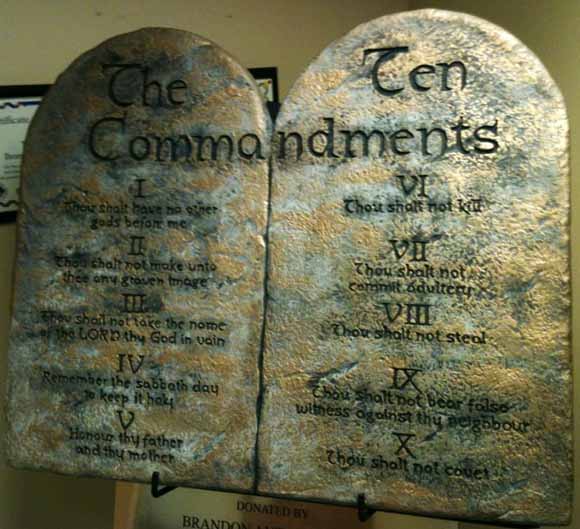 The Ten
Commandments
I
Thou shalt have no other
gods before me
II
Thou shalt not make unto
thee any graven image
III
Thou shalt not take the name
of the LORD thy God in vain
IV
Remember the sabbath day
to keep it holy
V
Honour thy father
and thy mother
VI
Thou shalt not kill
VII
Thou shalt not
commit adultery
VIII
Thou shalt not steal
IX
Thou shalt not bear false
witness against thy neighbour
X
Thou shalt not covet
DONATED BY
BRANDON